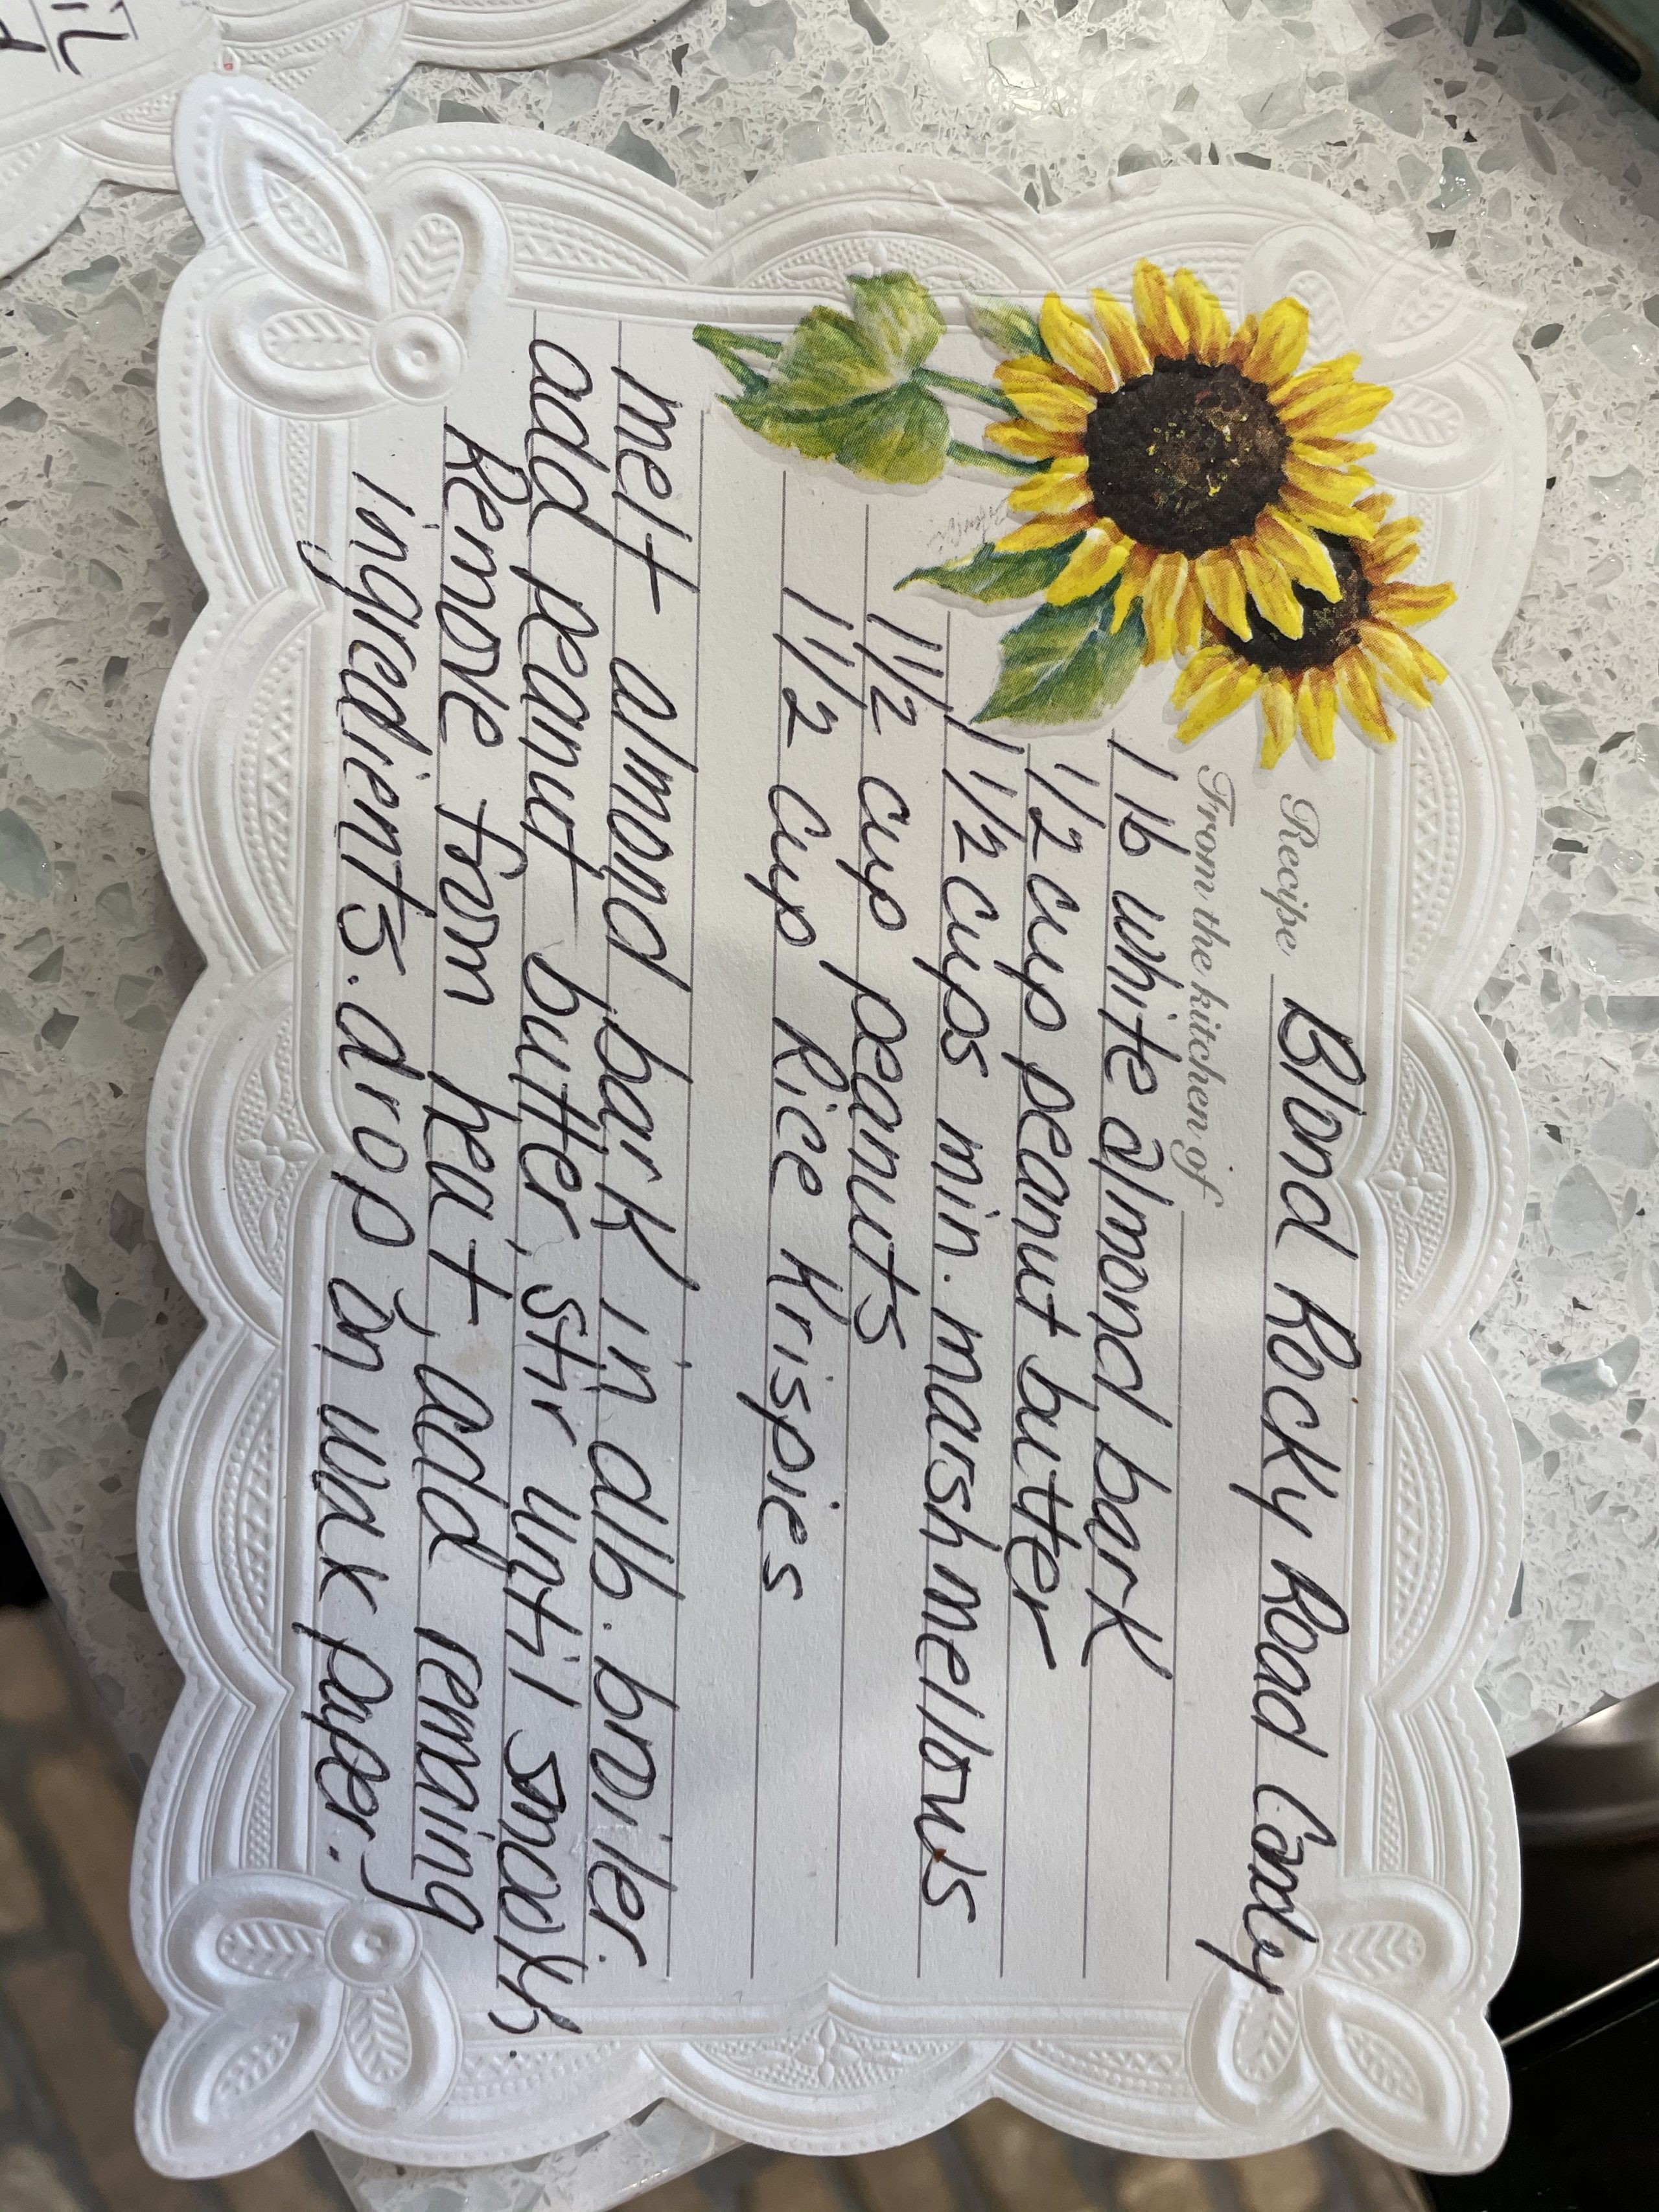 Recipe Blond Rocky Road Candy
From the kitchen of
1 lb white almond bark
1/2 cup peanut butter
1 1/2 cups min. marshmellows
1 1/2 cup peanuts
1 1/2 cup Rice Krispies
melt almond bark in dlb. broiler.
add peanut butter, stir until smooth.
Remove from heat, add remaing
ingredients. drop on wax paper.